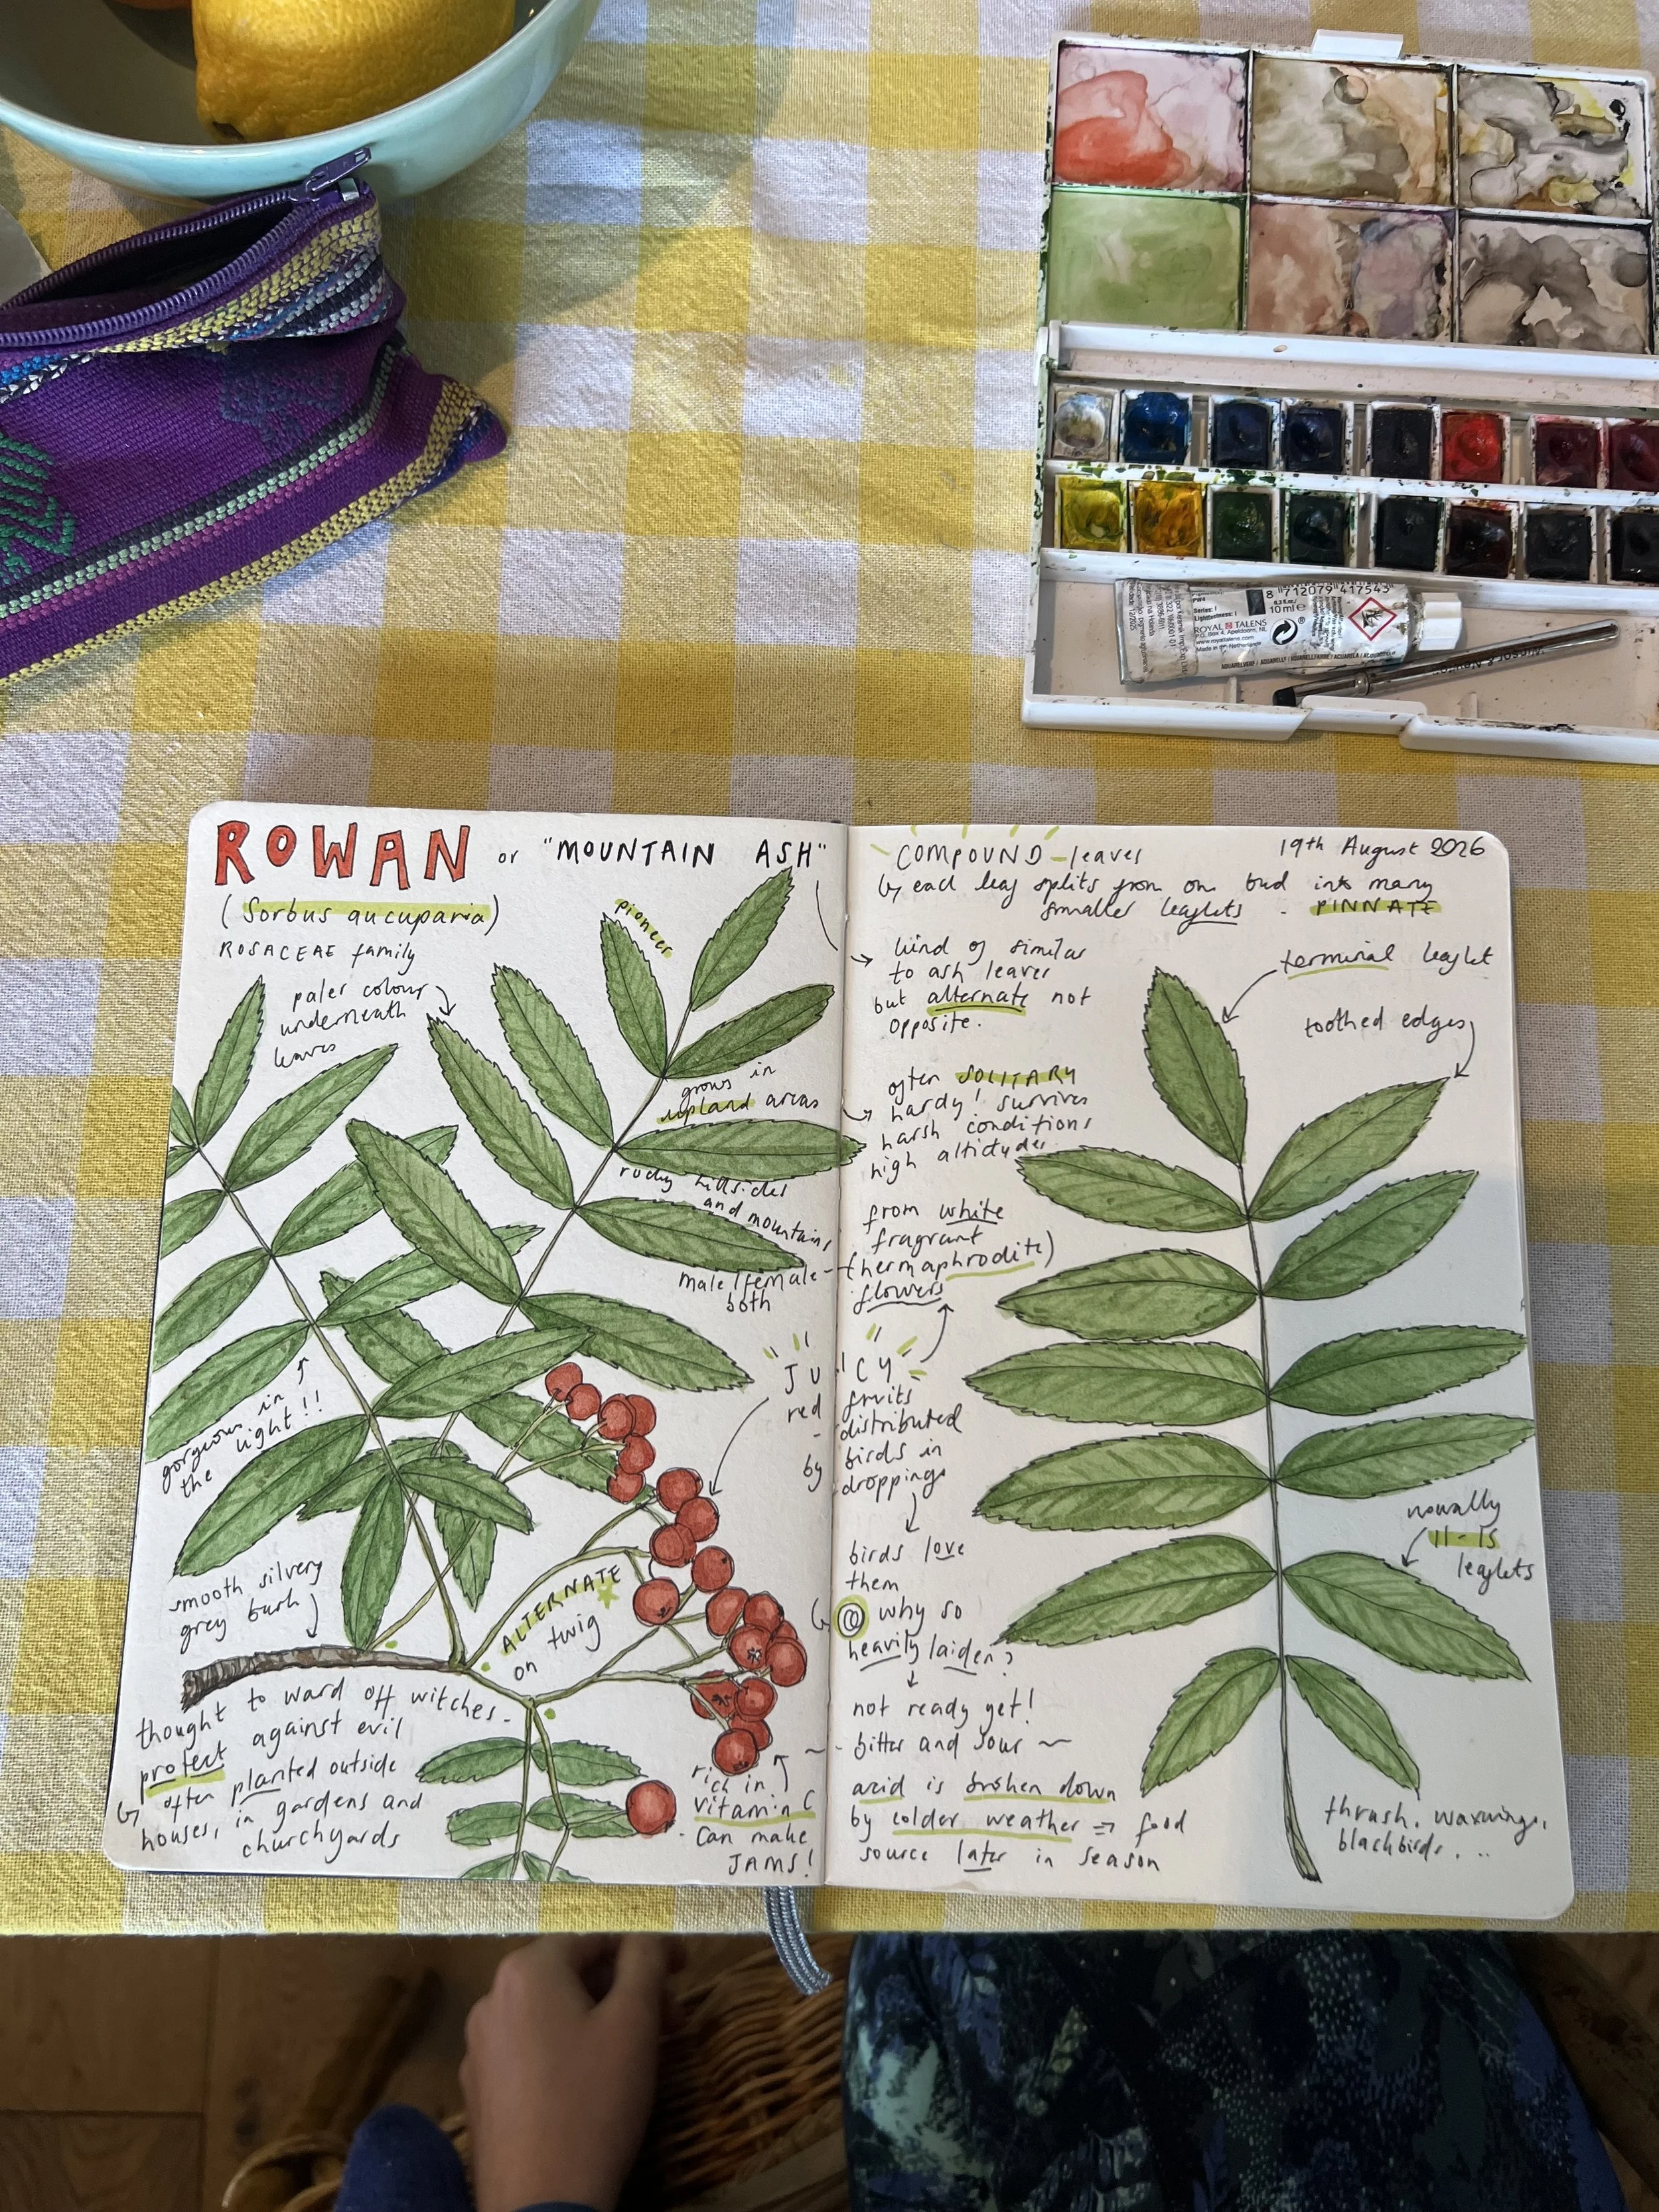 8 712079 417545
PW4
Series: 1
10 ml e
ROYAL TALENS
P.O. Box 4, Apeldoorn, NL
www.royaltalens.com
Made in the Netherlands
AQUARELVERF / AQUARELL / AQUARELLFARBE / ACUARELA / ACQUERELLO
ROWAN or "MOUNTAIN ASH"
(Sorbus aucuparia)
ROSACEAE family
pioneer
paler colour
underneath
leaves
grows in
upland areas
rocky hillsides
and mountains
male/female
both
gorgeous in
the light!!
smooth silvery
grey bark
ALTERNATE
on twig
thought to ward off witches.
protect against evil
often planted outside
houses, in gardens and
churchyards
rich in
vitamin C
- can make
JAMS!
COMPOUND - leaves
19th August 2026
each leaf splits from one bud into many
smaller leaflets. PINNATE
kind of similar
to ash leaves
but alternate not
opposite.
often SOLITARY
hardy! survives
harsh conditions
high altitudes
from white
fragrant
(hermaphrodite)
flowers
"JUICY"
red fruits
- distributed
by birds in
droppings
birds love
them
why so
heavily laiden?
not ready yet!
bitter and sour
acid is broken down
by colder weather => food
source later in season
terminal leaflet
toothed edges
11-15
leaflets
thrush, waxwings,
blackbirds...